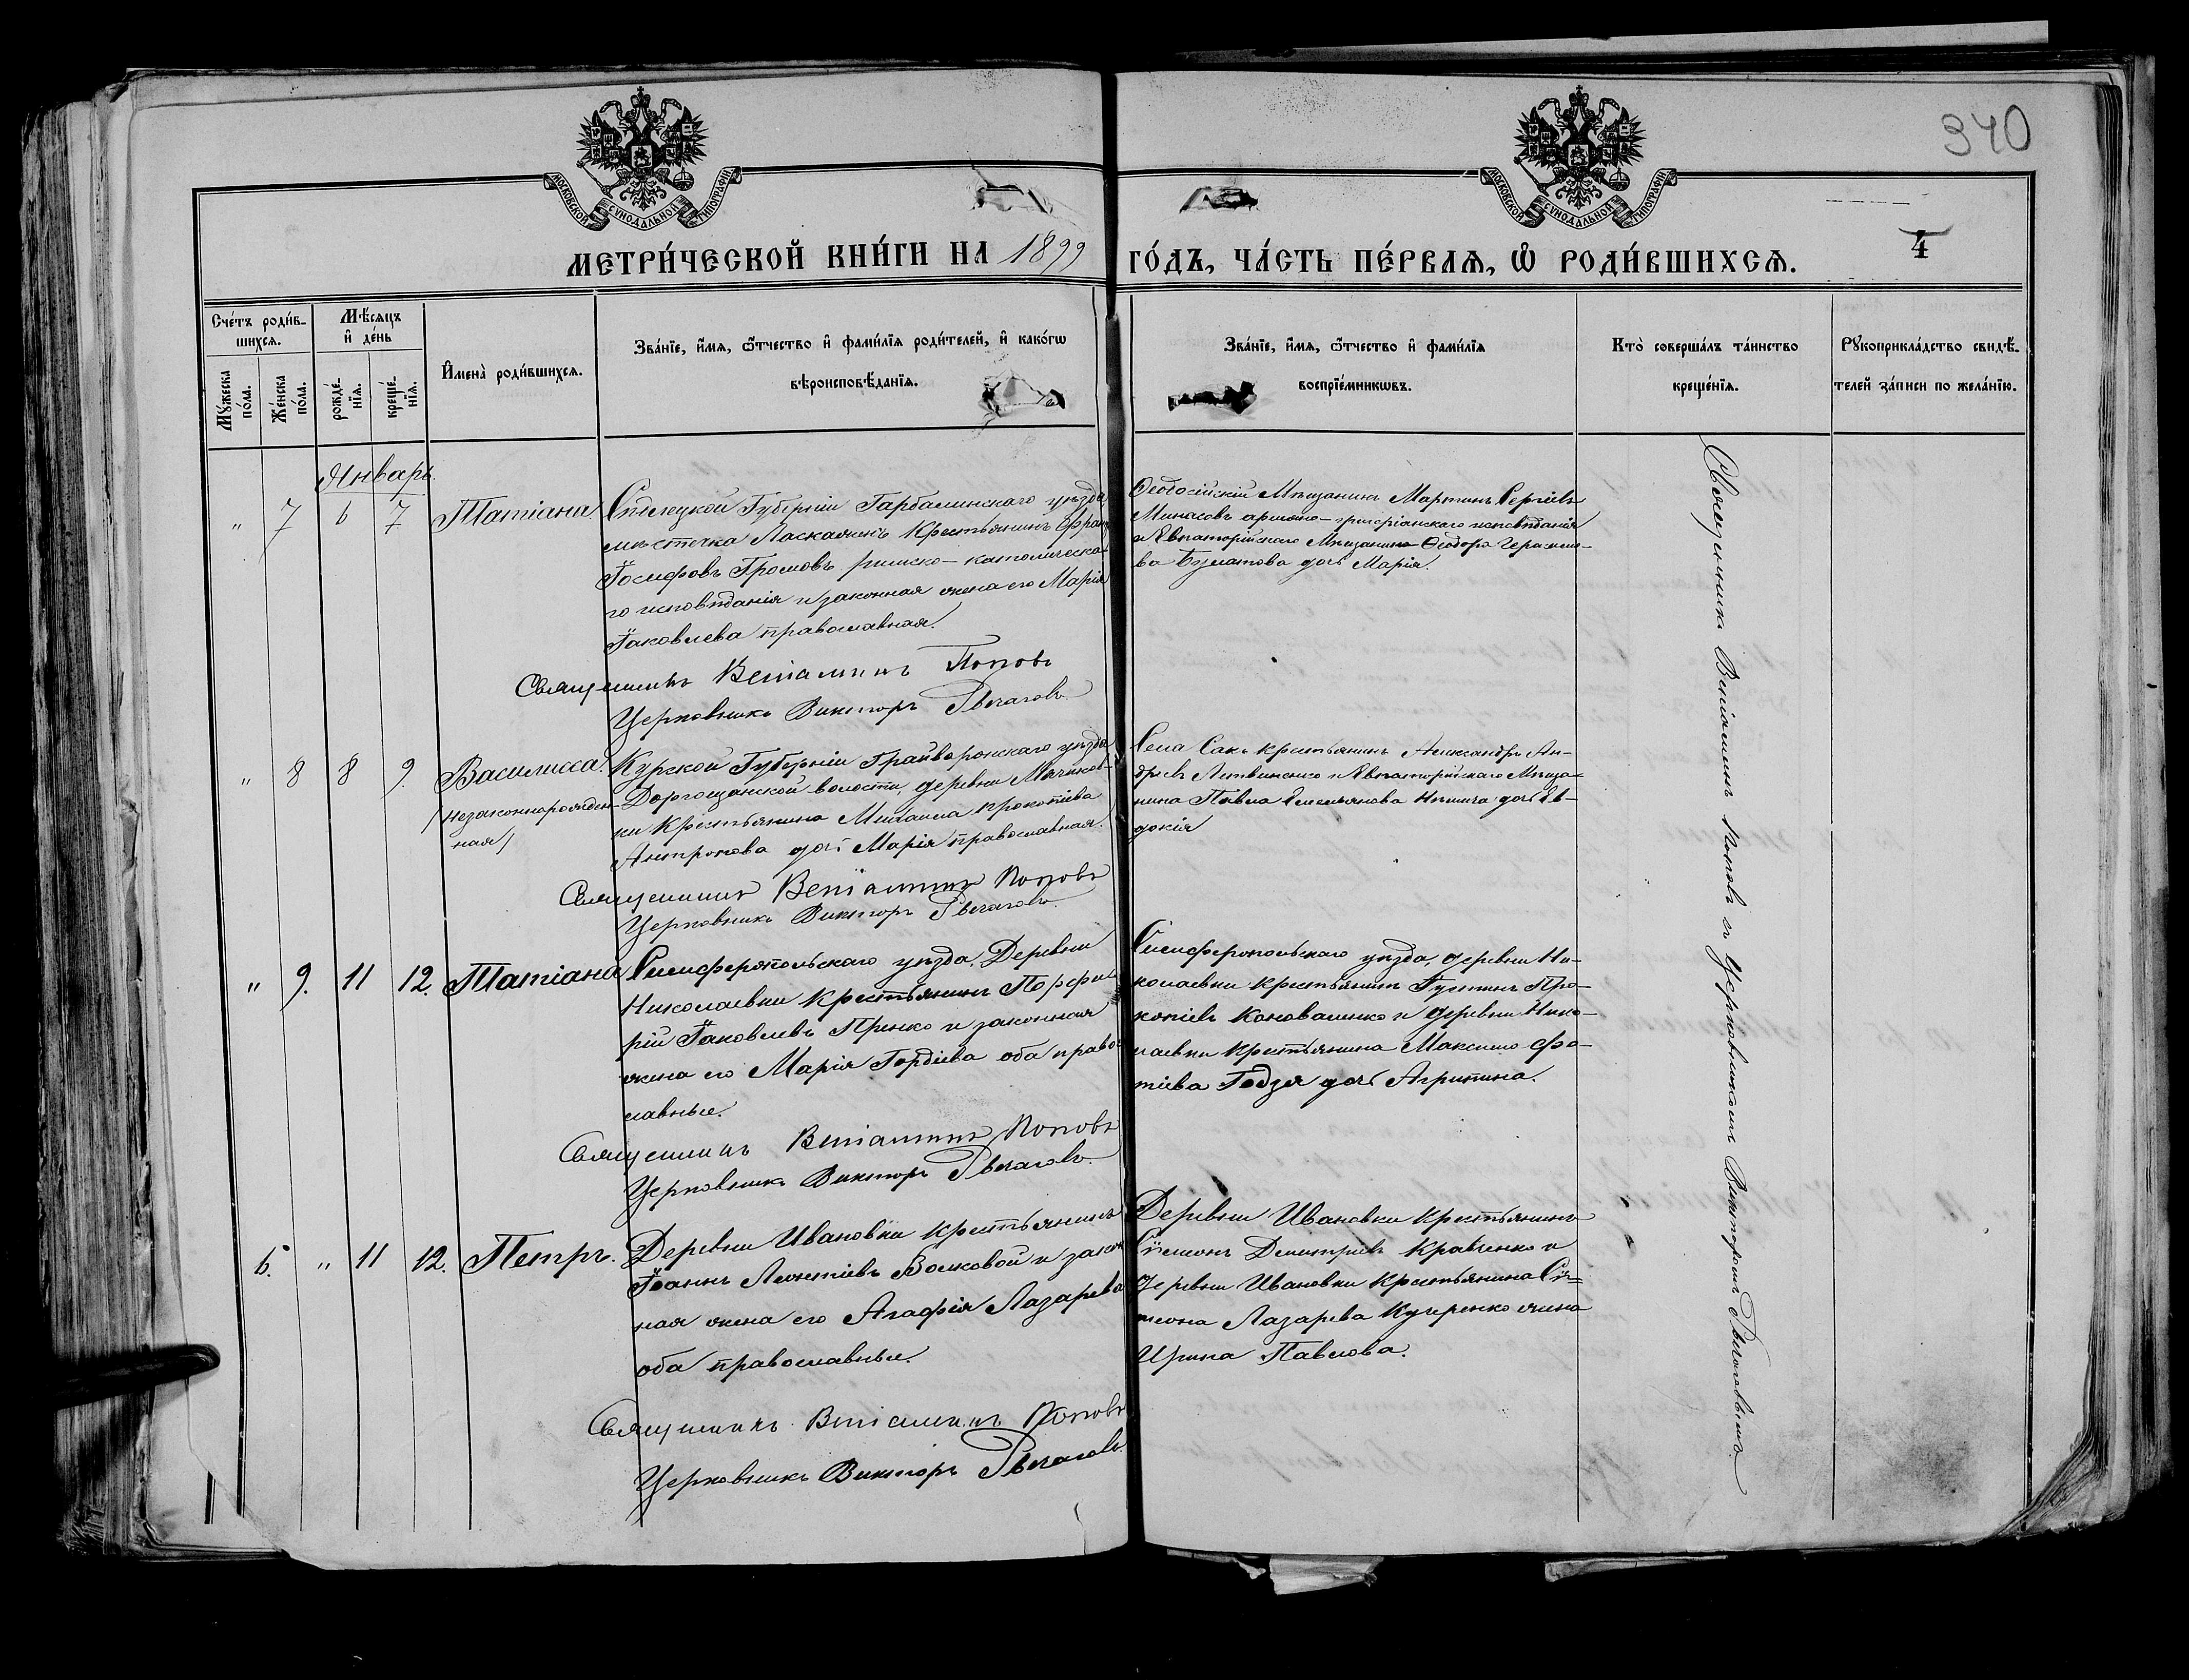 340
МОСКОВСКОЙ СѴНОДАЛЬНОЙ ТИПОГРАФІИ
МОСКОВСКОЙ СѴНОДАЛЬНОЙ ТИПОГРАФІИ
МЕТРИ́ЧЕСКОЙ КНИ́ГИ НА 1899 ГО́ДЪ, ЧА́СТЬ ПЕ́РВАѦ, Ѽ РОДИ́ВШИХСѦ. 4
Сче́тъ роди́в-
шихсѧ.
Мꙋ́жеска по́ла.
Же́нска по́ла.
Мѣ́сѧцъ
и҆ де́нь
рожде́-нїѧ.
креще́-нїѧ.
И҆мена̀ роди́вшихсѧ.
Зва́нїе, и҆́мѧ, ѻ҆́тчество и҆ фами́лїѧ роди́телей, и҆ како́гѡ
вѣроисповѣ́данїѧ.
Зва́нїе, и҆́мѧ, ѻ҆́тчество и҆ фами́лїѧ
воспрїе́мникѡвъ.
Кто̀ соверша́лъ та́инство
креще́нїѧ.
Рꙋкоприкла́дство свидѣ́-
телей за́писи по жела́нїю.
Январь.
" 7 6 7 Татіана
Сѣдлецкой Губерніи Гарвалинскаго уѣзда
мѣстечка Крестьянинъ Фран
Іосифовъ Громовъ римско-католическа
го исповѣданія и законная жена его Марія
Іаковлева православная.
Священникъ Веніаминъ Поповъ
Церковникъ Викторъ
Ѳеодосійскій Мѣщанинъ Мартинъ Сергіевъ
Минасовъ армяно-григоріанскаго исповѣданія
и Евпаторійскаго Мѣщанина Ѳеодора Герасимо-
ва дочь Марія.
" 8 8 9. Василисса.
/незаконнорожден-
ная/
Курской Губерніи Грайворонскаго уѣзда
Дорогощанской волости, деревни
ки Крестьянина Михаила Прокопіева
Антропова дочь Марія православная.
Священникъ Веніаминъ Поповъ
Церковникъ Викторъ
Села Сакъ крестьянинъ Александръ Ан-
дреевъ Литвиненко и Евпаторійскаго Мѣща-
нина Павла Емельянова дочь Ев-
докія
" 9. 11 12. Татіана
Симферопольскаго уѣзда, Деревни
Николаевки Крестьянинъ Порфи
рій Іаковлевъ и законная
жена его Марія Гордіева оба право
славные.
Священникъ Веніаминъ Поповъ
Церковникъ Викторъ
Симферопольскаго уѣзда, деревни Ни-
колаевки крестьянинъ Густинъ Про-
копіевъ Коноваленко и деревни Нико-
лаевки Крестьянина Максима Фо-
тіева Годзя дочь Агрипина.
6. " 11 12. Петръ.
Деревни Ивановки крестьянинъ
Іоаннъ Леонтіевъ Волковой и закон
ная жена его Агафія Лазарева
оба православные.
Священникъ Веніаминъ Поповъ
Церковникъ Викторъ
Деревни Ивановки Крестьянинъ
Сѵмеонъ Димитріевъ Кравченко и
деревни Ивановки Крестьянина Сѵ-
меона Лазарева Кучеренко жена
Ирина Павлова.
Священникъ Веніаминъ Поповъ и Церковникомъ Викторомъ